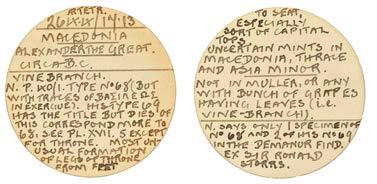 AR TETR.
26.IX.IX / 14.13
MACEDONIA
ALEXANDER THE GREAT.
CIRCA B.C.
VINE BRANCH.
N. P. TYPE Nº 68 (BUT
WITH TRACES OF
IN EXERGUE). HIS TYPE 69
HAS THE TITLE BUT DIES OF
THIS CORRESPOND MORE TO
68; SEE PL. XVII. 5 EXCEPT
FOR THRONE. MOST UN-
USUAL FORMATION
OF LEGS OF THRONE
FROM FEET
TO SEAT,
ESPECIALLY
SORT OF CAPITAL
TOPS.
UNCERTAIN MINTS IN
MACEDONIA, THRACE
AND ASIA MINOR.
NOT IN MULLER, OR ANY
WITH BUNCH OF GRAPES
HAVING LEAVES (i.e.
VINE-BRANCH).
N. SAYS ONLY 1 SPECIMEN OF
Nº 68 AND 2 OF HIS Nº 69
IN THE DEMANHUR FIND.
EX SIR RONALD
STORRS.